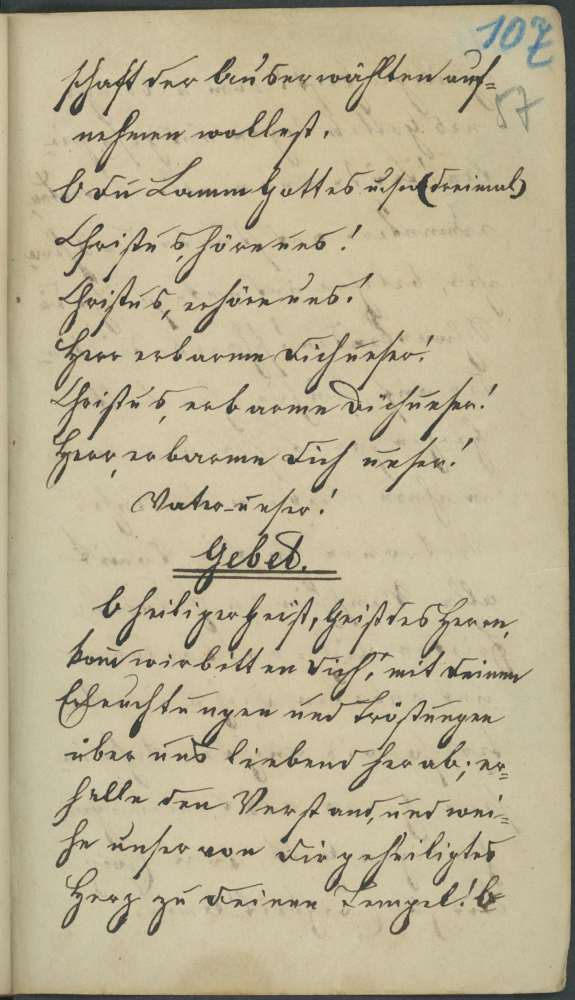 107
57
schaft der Auserwählten auf-
nehmen wollest.
O du Lamm Gottes u.s.w. (dreimal)
Christus, höre uns!
Christus, erhöre uns!
Herr erbarme Dich unser!
Christus, erbarme Dich unser!
Herr, erbarme Dich unser!
Vater-unser!
Gebet.
O heiliger Geist, Geist des Herrn,
kom̄ wir bitten Dich, mit Deinen
Erleuchtungen und Tröstungen
über uns liebend herab; er-
helle den Verstand, und wei-
he unser von Dir geheiligtes
Herz zu Deinem Tempel! O